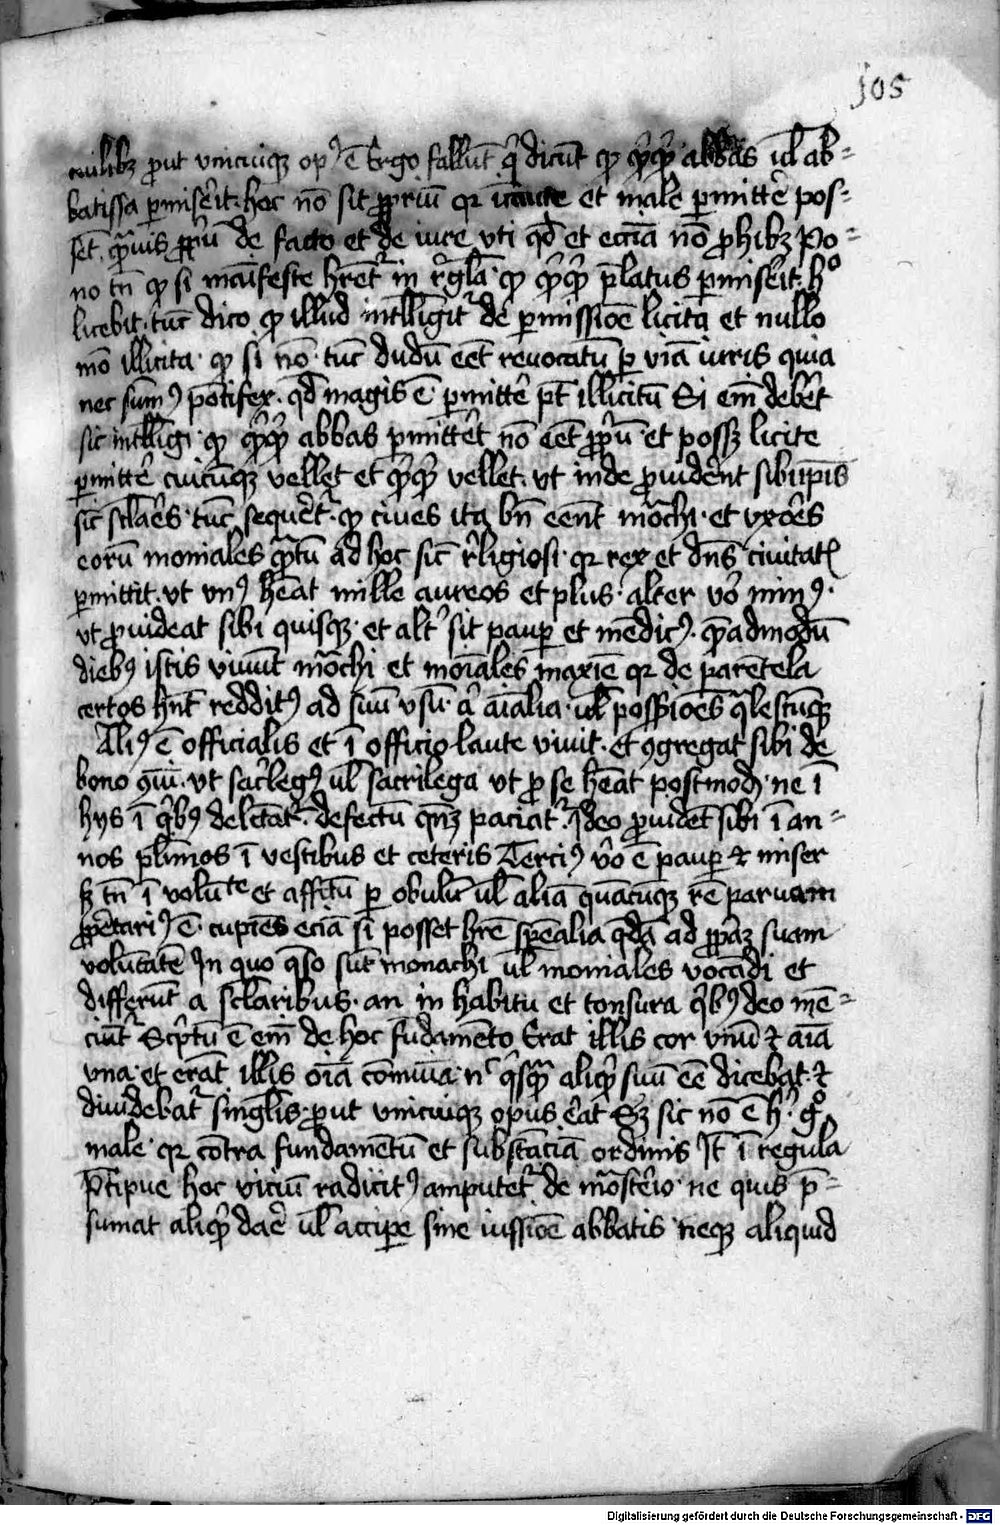 105
cuilibꝫ ꝓut vnicuiqꝫ opꝰ ē Ergo fallūt q̇ dicūt ꝙ qͥcqͥd abbas ul̄ ab-
batissa ꝑmiserit. hoc nō sit ꝓpriū qꝛ et male ꝑmitte᷑ pos-
set. qͣuis ꝓpͥū de facto et de iure vti qd̄ et eccīa nō ꝓhibꝫ Po-
no tn̄ ꝙ si māifeste hr̄et᷑ in r̄gla ꝙ qͥcqͥd p̄latus ꝑmiserit. hͦ
licebit. tūc dico ꝙ illud intelligit᷑ de ꝑmissiōe licita et nullo
mō illicita. ꝙ si nō. tūc dudū eēt reuocatū ꝑ viā iuris quia
nec sūmꝰ pōtifex. qd̄ magis ē. ꝑmitte᷑ pt̄ illicitū Si em̄ debēt
sic intelligi. ꝙ qͥcqͥd abbas ꝑmitte᷑t nō eēt ꝓpͥū. et possꝫ licite
ꝑmitte᷑ cuicūqꝫ vellet et qͥcqͥd vellet. vt inde ꝓuide᷑nt sibiip̄is
sic sclāres. tūc seque᷑t᷑. ꝙ ciues ita bn̄ eēnt mōchi. et vxōes
eorū moniales qͣtū ad hoc sic r̄ligiosi. qꝛ rex et dn̄s ciuitatꝭ
ꝑmittit. vt vnꝰ hēat mille aureos et plus. alter vō minꝰ.
vt ꝓuideat sibi quisqꝫ. et alt᷑ sit pauꝑ et mēdicꝰ. qͣadmodū
diebꝰ istis viuūt mōchi et moīales maxīe qꝛ de parētela
certos hn̄t redditꝰ ad suū vsū. a᷑ aīalia. ul̄ possiōēs qͣlescūqꝫ
Aliꝰ ē officialis et ī officio laute viuit. et ꝯgregat sibi de
bono ꝯui. vt sac̄legꝰ ul̄ sacrilega vt ꝓ se hēat postmodꝫ. ne ī
hys ī qͥbꝰ delc̄tat᷑. defectū paciat᷑. Ideo ꝓuidēt sibi ī an-
nos pl̄imos ī vestibus et ceteris Terciꝰ vō ē pauꝑ ⁊ miser
sꝫ tn̄ ī volūte et affc̄tū ꝑ obulū ul̄ aliā quācūqꝫ rē paruam
ꝓpͥetariꝰ ē. cupiēs eciā si posset hr̄e sp̄ealia qͣdā ad ꝓpͥaꝫ suam
volūtatē In quo qͣso sūt monachi ul̄ moniales vocādi et
differūt a sclaribus. an in habitu et tonsura qͥbꝰ deo mē-
ciūt᷑ Scͥptū ē em̄ de hoc fūdamēto Erat illis cor vnū ⁊ aīa
vna. et erāt illis oīa cōmūia. nͨ qͥsqͣ aliqͥd suū eē dicebat. ⁊
diuidebat᷑ singl̄is. ꝓut vnicuiqꝫ opus erat Sꝫ sic nō ē hͥ. gͦ
male. qꝛ cōtra fundamētū et substāciā ordinis It̄ ī regula
P̄cipue hoc viciū radicitꝰ amputet᷑ de mōsterio. ne quis p̄-
sumat aliqͥd dare ul̄ accipe sine iussiōe abbatis neqꝫ aliquid
Digitalisierung gefördert durch die Deutsche Forschungsgemeinschaft - DFG